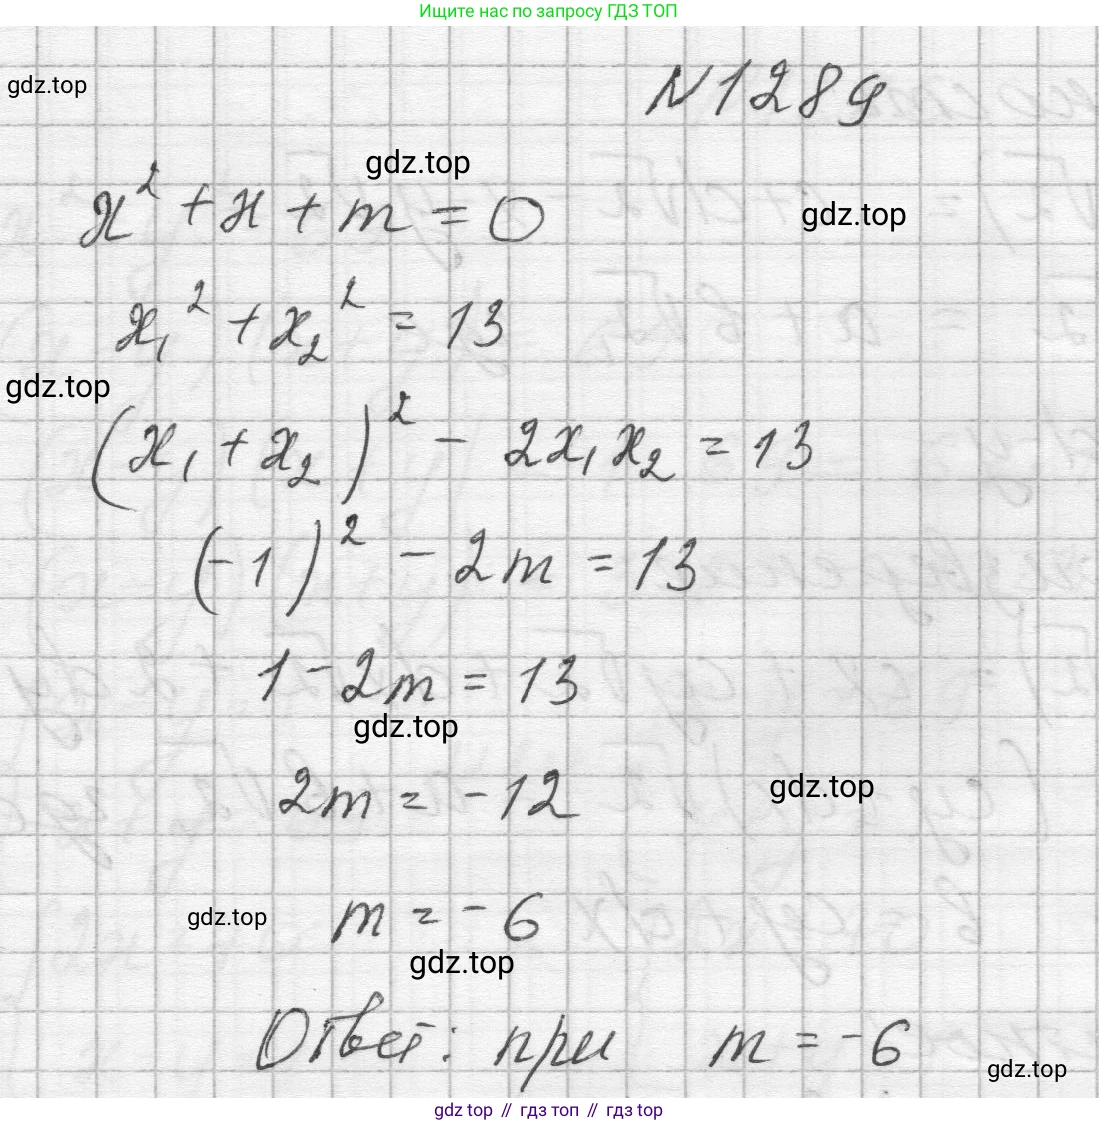 Ищите нас по запросу ГДЗ ТОП
gdz.top
N1289
gdz.top
x² + x + m = 0
gdz.top
x₁² + x₂² = 13
gdz.top
(x₁ + x₂)² - 2x₁x₂ = 13
(-1)² - 2m = 13
1 - 2m = 13
gdz.top
2m = -12
gdz.top
m = -6
gdz.top
gdz.top
Ответ: при m = -6
gdz.top
gdz top // гдз топ // gdz.top